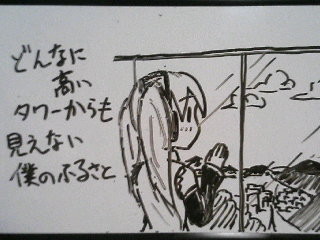 どんなに
高い
タワーからも
見えない
僕のふるさと